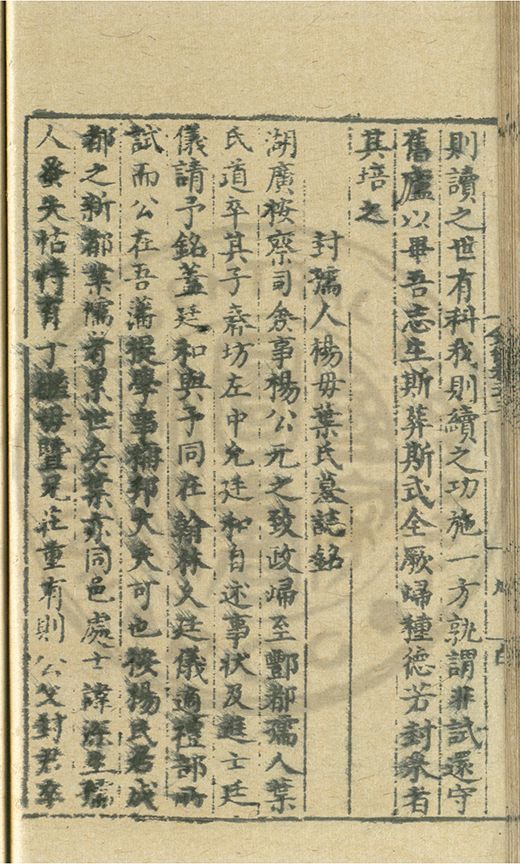 則讀之世有科我則續之功施一方孰謂非試還守
舊廬以畢吾志生斯葬斯式全厥歸種德若封衆者
其培之
封孺人楊母葉氏墓誌銘
湖廣按察司僉事楊公元之致政歸至酆都孺人葉
氏道卒其子春坊左中允廷和自述事狀及進士廷
儀請予銘蓋廷和與予同在翰林久廷儀適禮部所
試而公在吾藩提學事稱邦大夫可也按楊氏居成
都之新都業儒者累世矣葉亦同邑處士諱深生孺
人蚤失怙恃育于繼母暨兄莊重有則公父封君卒